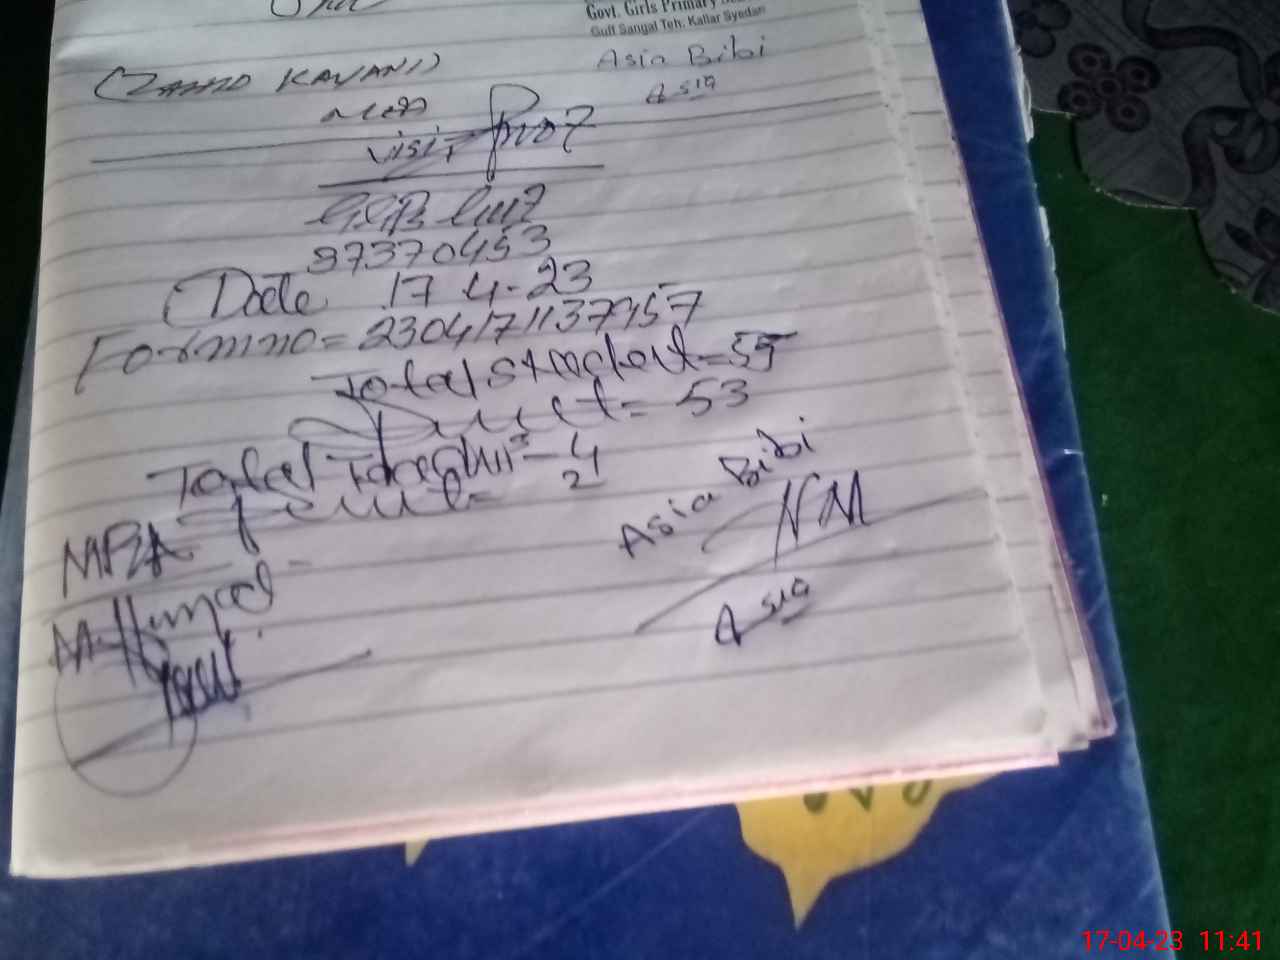 Govt. Girls Primary
Guff Sangal Teh. Kallar Syedan
(ZAHID KAYANI)
Asia Bibi
Asia
MEA
Visit Proof
37370453
Date 17-4-23
Form no = 2304171137957
Total Student = 55
Present = 53
Total Teacher = 4
Present = 2
MEA
M. Ahmad
Asia Bibi
Asia
17-04-23 11:41